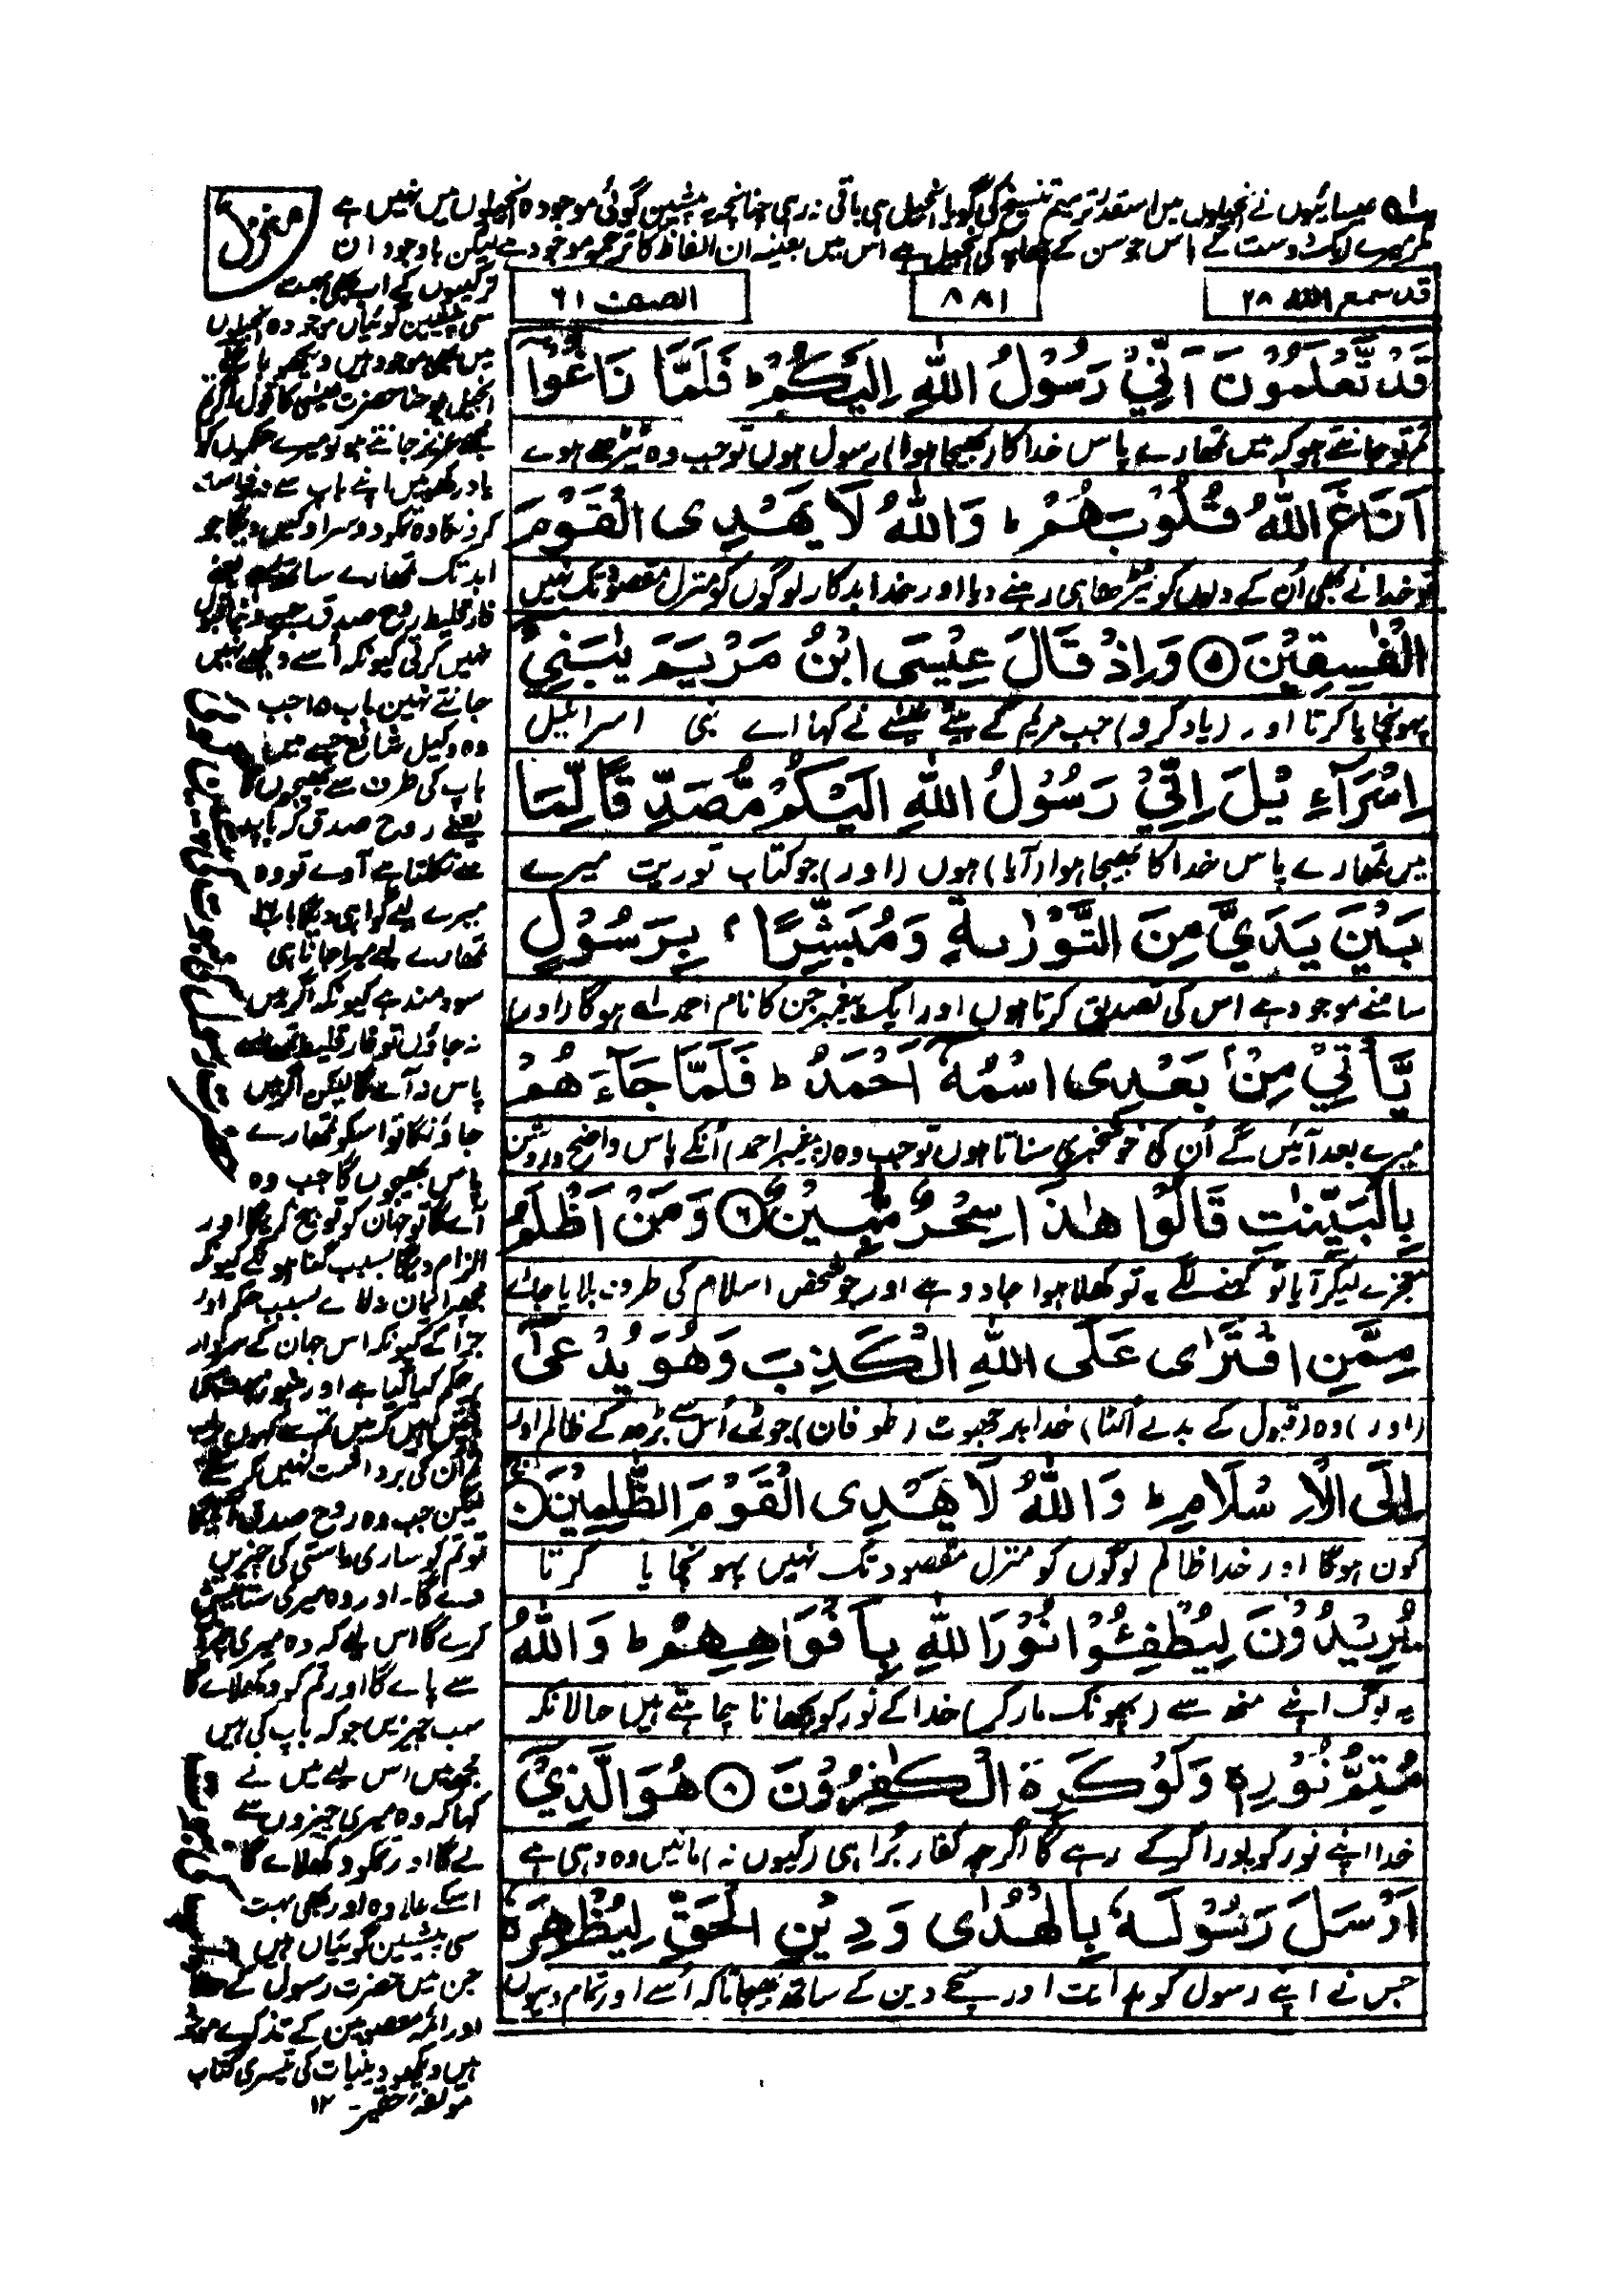 عیسائیوں نے انجیلوں میں اسقدر ترمیم تنسیخ کی گویا انجیل ہی باقی نہ رہی چنانچہ یہ پیشین گوئی موجودہ انجیلوں میں نہیں ہے
مگر میرے ایک دوست کے پاس جو سن کے کی انجیل ہے اس میں بعینہ ان الفاظ کا ترجمہ موجود ہے لیکن باوجود ان
منزل
قد سمع اللہ ۲۸
۸۸۱
الصف ۶۱
قَدْ تَّعْلَمُوْنَ اَنِّيْ رَسُوْلُ اللّٰهِ اِلَيْكُمْ ط فَلَمَّا زَاغُوْٓا
تم تو جانتے ہو کہ میں تمھارے پاس خدا کا (بھیجا ہوا) رسول ہوں تو جب وہ ٹیڑھے ہوے
اَزَاغَ اللّٰهُ قُلُوْبَهُمْ ط وَاللّٰهُ لَا يَهْدِى الْقَوْمَ
تو خدا نے بھی اُن کے دلوں کو ٹیڑھا ہی رہنے دیا اور خدا بدکار لوگوں کو منزل مقصود تک نہیں
الْفٰسِقِيْنَ ۵ وَاِذْ قَالَ عِيْسَى ابْنُ مَرْيَمَ يٰبَنِيْٓ
پہونچایا کرتا اور (یاد کرو) جب مریم کے بیٹے عیسٰے نے کہا اے بنی اسرائیل
اِسْرَآءِيْلَ اِنِّيْ رَسُوْلُ اللّٰهِ اِلَيْكُمْ مُّصَدِّقًا لِّمَا
میں تمھارے پاس خدا کا بھیجا ہوا (آیا) ہوں (اور) جو کتاب توریت میرے
بَيْنَ يَدَيَّ مِنَ التَّوْرٰىةِ وَمُبَشِّرًاۢ بِرَسُوْلٍ
سامنے موجود ہے اس کی تصدیق کرتا ہوں اور ایک پیغمبر جن کا نام احمد ہوگا (اور)
يَّاْتِيْ مِنْۢ بَعْدِى اسْمُهٗٓ اَحْمَدُ ط فَلَمَّا جَآءَهُمْ
میرے بعد آئیں گے اُن کی خوشخبری سناتا ہوں تو جب وہ (پیغمبر احمد) اُنکے پاس واضح و روشن
بِالْبَيِّنٰتِ قَالُوْا هٰذَا سِحْرٌ مُّبِيْنٌ ۶ وَمَنْ اَظْلَمُ
معجزے لیکر آیا تو کہنے لگے یہ تو کھلا ہوا جادو ہے اور جو شخص اسلام کی طرف بلایا جاے
مِمَّنِ افْتَرٰى عَلَى اللّٰهِ الْكَذِبَ وَهُوَ يُدْعٰٓى
(اور) وہ (قبول کے بدلے اُلٹا) خدا پر جھوٹ (طوفان) جوڑے اُس سے بڑھ کے ظالم اور
اِلَى الْاِسْلَامِ ط وَاللّٰهُ لَا يَهْدِى الْقَوْمَ الظّٰلِمِيْنَ
کون ہوگا اور خدا ظالم لوگوں کو منزل مقصود تک نہیں پہونچایا کرتا
يُرِيْدُوْنَ لِيُطْفِـُٔوْا نُوْرَ اللّٰهِ بِاَفْوَاهِهِمْ ط وَاللّٰهُ
یہ لوگ اپنے منھ سے (پھونک مار کر) خدا کے نور کو بجھانا چاہتے ہیں حالانکہ
مُتِمُّ نُوْرِهٖ وَلَوْ كَرِهَ الْكٰفِرُوْنَ هُوَ الَّذِيْٓ
خدا اپنے نور کو پورا کرکے رہے گا اگرچہ کفار بُرا ہی (کیوں نہ) مانیں وہ وہی ہے
اَرْسَلَ رَسُوْلَهٗ بِالْهُدٰى وَدِيْنِ الْحَقِّ لِيُظْهِرَهٗ
جس نے اپنے رسول کو ہدایت اور سچے دین کے ساتھ بھیجا تاکہ اُسے اور تمام دینوں
ترکیبوں کے اب بھی بہت
سی پیشین گوئیاں موجودہ انجیلوں
میں بھی موجود ہیں دیکھو باب
انجیل یوحنا حضرت عیسٰی کا قول اگر تم
مجھے عزیز جانتے ہو تو میرے حکموں کو
یاد رکھو میں اپنے باپ سے درخواست
کرونگا وہ تمکو دوسرا وکیل دیگا جو
ابد تک تمھارے ساتھ رہے یعنے
فارقلیط روح صدق جسے دنیا قبول
نہیں کرتی کیونکہ اُسے دیکھے نہیں
جانتے نہیں باب ۱۵ جب
وہ وکیل شافع جسے میں
باپ کی طرف سے بھیجوں گا
یعنے روح صدق کہ باپ
سے نکلتا ہے آوے تو وہ
میرے لیے گواہی دیگا باب ۱۶
تمھارے لیے میرا جانا ہی
سودمند ہے کیونکہ اگر میں
نہ جاؤں تو فارقلیط تمھارے
پاس نہ آے گا لیکن اگر میں
جاؤنگا تو اسکو تمھارے
پاس بھیجوں گا جب وہ
آے گا تو جہان کو توبیخ کریگا اور
الزام دیگا بسبب گناہوں کے کیونکہ
مجھپر ایمان نہ لاے بسبب حکم اور
جزا کے کیونکہ اس جہان کے سردار
پر حکم کیا گیا ہے اور
باتیں ہیں کہ میں تم سے کہوں اب
تم اُن کی برداشت نہیں کر سکتے
لیکن جب وہ روح صدق آئیگا
تو تم کو ساری راستی کی خبریں
دے گا۔ اور وہ میری ستایش
کرے گا اس لیے کہ وہ میری
سے پاے گا اور تم کو دکھلاے گا
سب چیزیں جو کہ باپ کی ہیں
مجھ میں اس لیے میں نے
کہا کہ وہ میری چیزوں سے
لے گا اور تمکو دکھلاے گا
اسکے علاوہ اور بھی بہت
سی پیشین گوئیاں ہیں
جن میں حضرت رسول کے
اور ائمہ معصومین کے تذکرے موجود
ہیں دیکھو دینیات کی تیسری کتاب
مولفہ حقیر۔ ۱۲